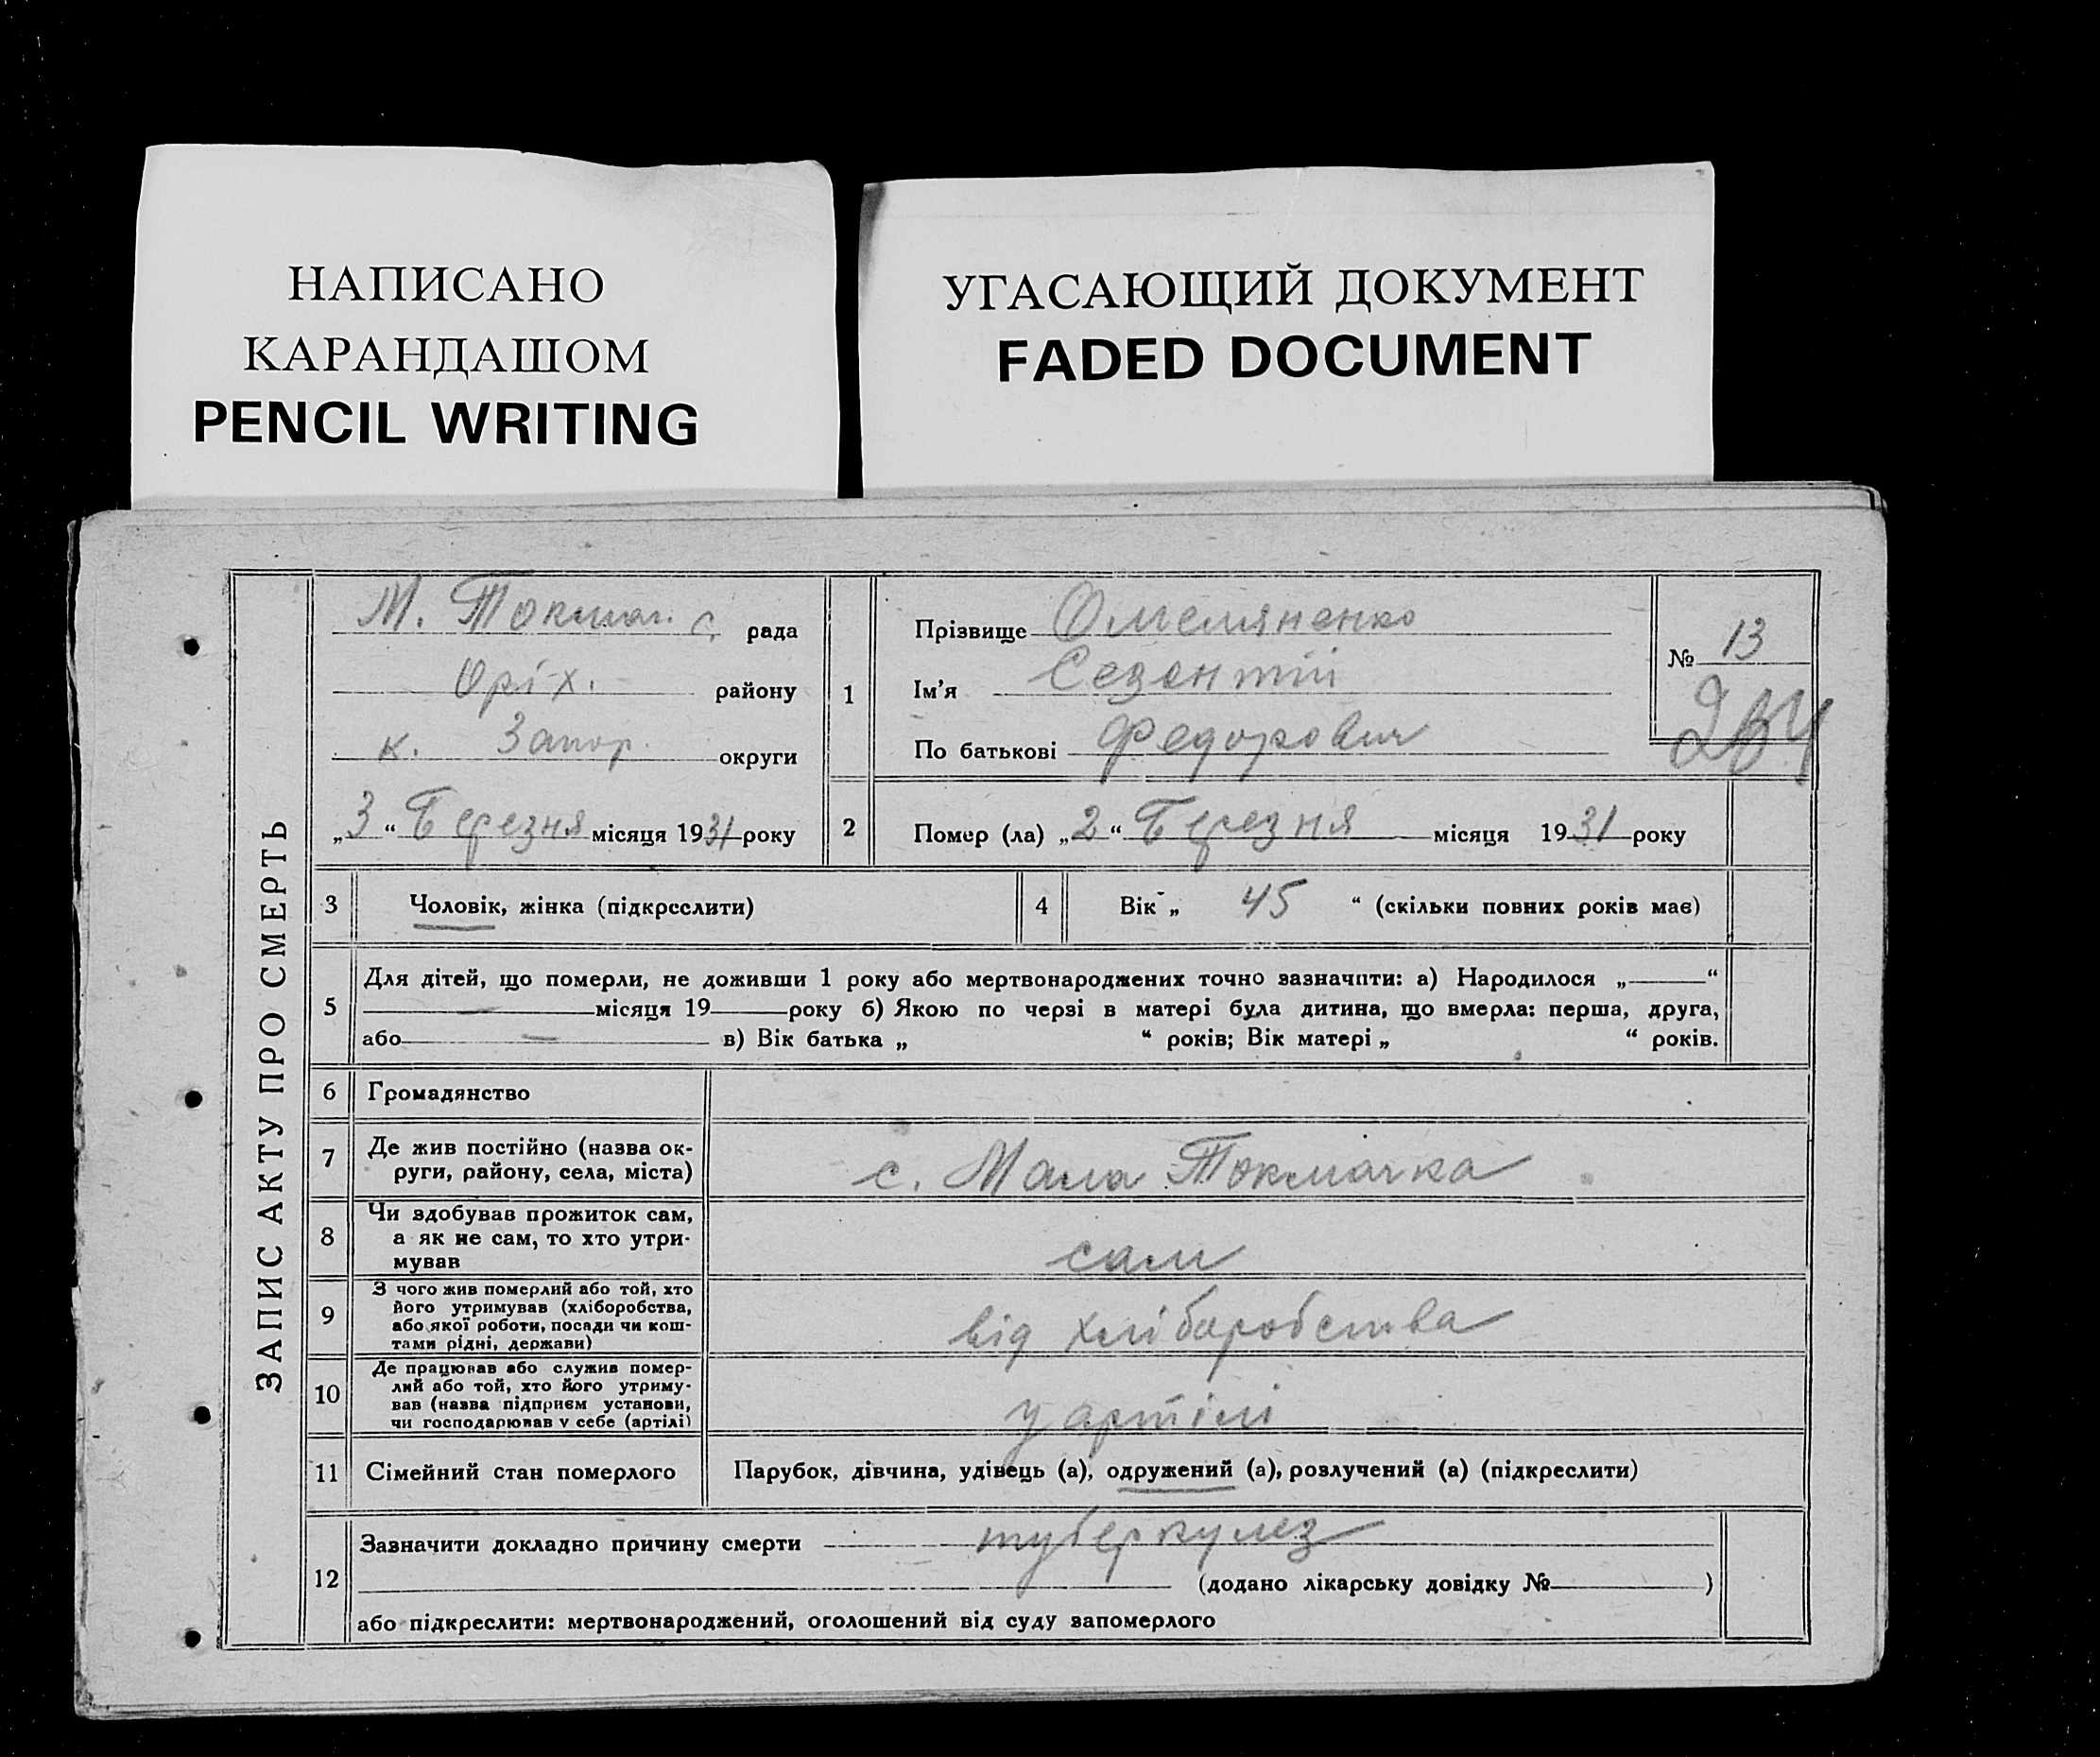 НАПИСАНО
КАРАНДАШОМ
PENCIL WRITING
УГАСАЮЩИЙ ДОКУМЕНТ
FADED DOCUMENT
ЗАПИС АКТУ ПРО СМЕРТЬ
М. Токмач. с. рада
Оріх. району
к. Запор. округи
„3“ Березня місяця 1931 року
1
Прізвище Омеляненко
Ім'я Сезентій
По батькові Федорович
№ 13
2
Помер (ла) „2“ Березня місяця 1931 року
3 Чоловік, жінка (підкреслити)
4 Вік „ 45 “ (скільки повних років має)
5
Для дітей, що померли, не доживши 1 року або мертвонароджених точно зазначити: а) Народилося „ “
— місяця 19 року б) Якою по черзі в матері була дитина, що вмерла: перша, друга,
або — в) Вік батька „ “ років; Вік матері „ “ років.
6 Громадянство
7 Де жив постійно (назва ок-
руги, району, села, міста)
с. Мала Токмачка
8 Чи здобував прожиток сам,
а як не сам, то хто утри-
мував
сам
9 З чого жив померлий або той, хто
його утримував (хліборобства,
або якої роботи, посади чи кош-
тами рідні, держави)
від хліборобства
10 Де працював або служив помер-
лий або той, хто його утриму-
вав (назва підприєм установи,
чи господарював у себе (артілі)
у артілі
11 Сімейний стан померлого
Парубок, дівчина, удівець (а), одружений (а), розлучений (а) (підкреслити)
12 Зазначити докладно причину смерти туберкулез
(додано лікарську довідку № )
або підкреслити: мертвонароджений, оголошений від суду запомерлого